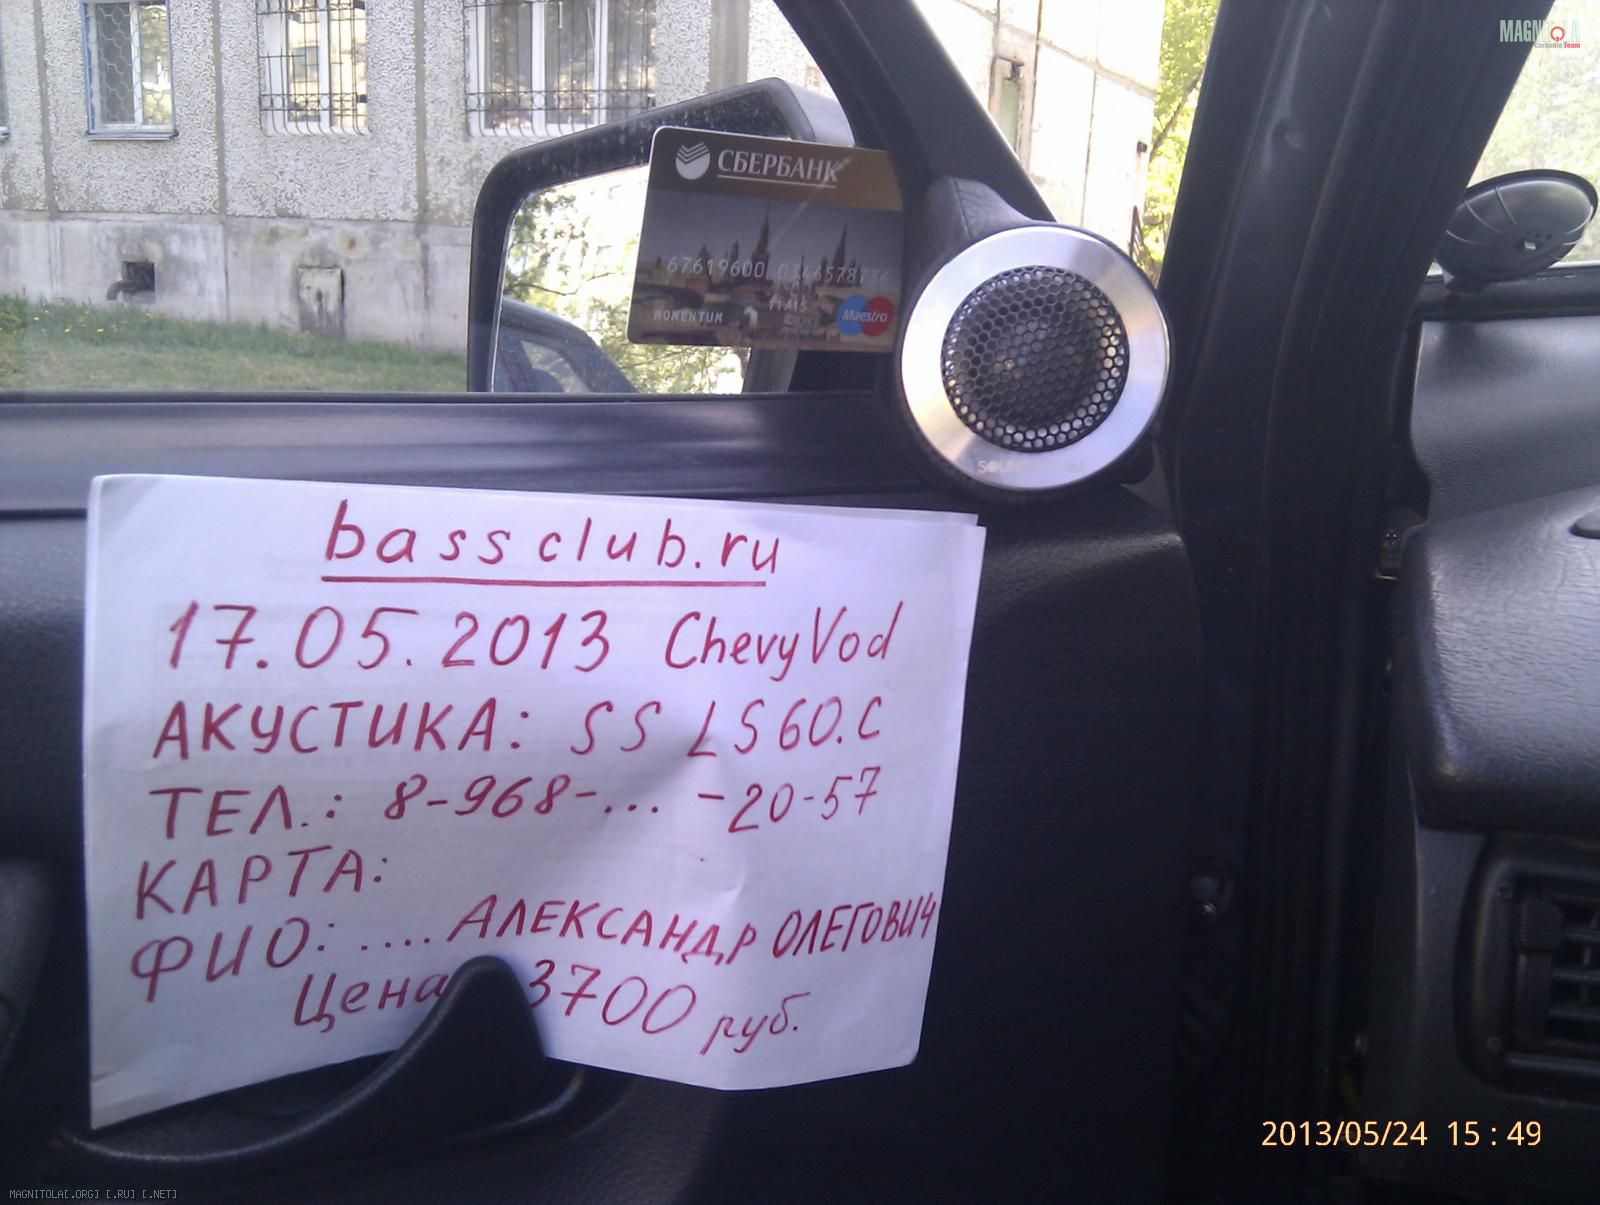 MAGNITOLA
CarAudio Team
СБЕРБАНК
MOMENTUM
Maestro
bassclub.ru
17.05.2013 ChevyVod
АКУСТИКА: SS LS60.C
ТЕЛ.: 8-968-... -20-57
КАРТА:
ФИО: .... АЛЕКСАНДР ОЛЕГОВИЧ
Цена 3700 руб.
2013/05/24 15:49
MAGNITOLA[.ORG] [.RU] [.NET]